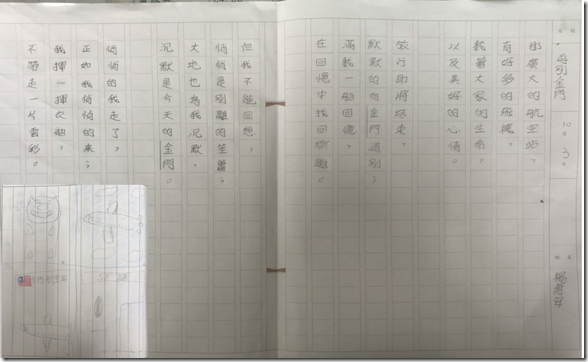 再別金門
10. 3.
那廣大的航空站，
有好多的飛機，
載著大家的生命，
以及美好的心情。
旅行即將結束，
默默的向金門道別；
滿載一船回憶，
在回憶中找回
但我不能回想，
悄悄是別離的笙蕭；
大地也為我沉默，
沉默是今天的金門。
悄悄的我走了，
正如我悄悄的來；
我揮一揮衣袖，
不帶走一片雲彩。